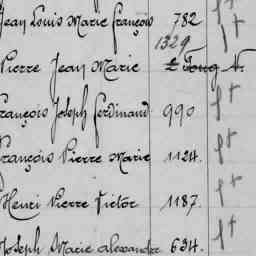 Jean Louis Marie François 782
1329
Pierre Jean Marie
François Joseph Ferdinand 990
François Pierre Marie 1124.
Henri Pierre Victor 1187.
Joseph Marie alexandre 634.